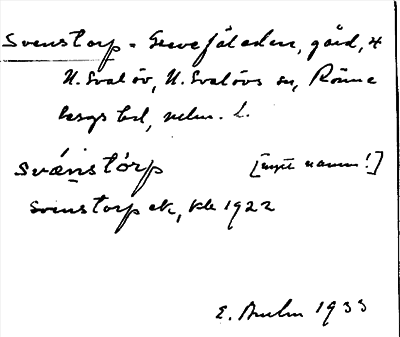 Svenstorp = Gevefäladen, gård, 4
N. Svalöv, N. Svalövs sn, Rönne
bergs hd, Malm. L.
svǽnstórp [nytt namn!]
Svenstorp ek, kbl 1922
E. 1933